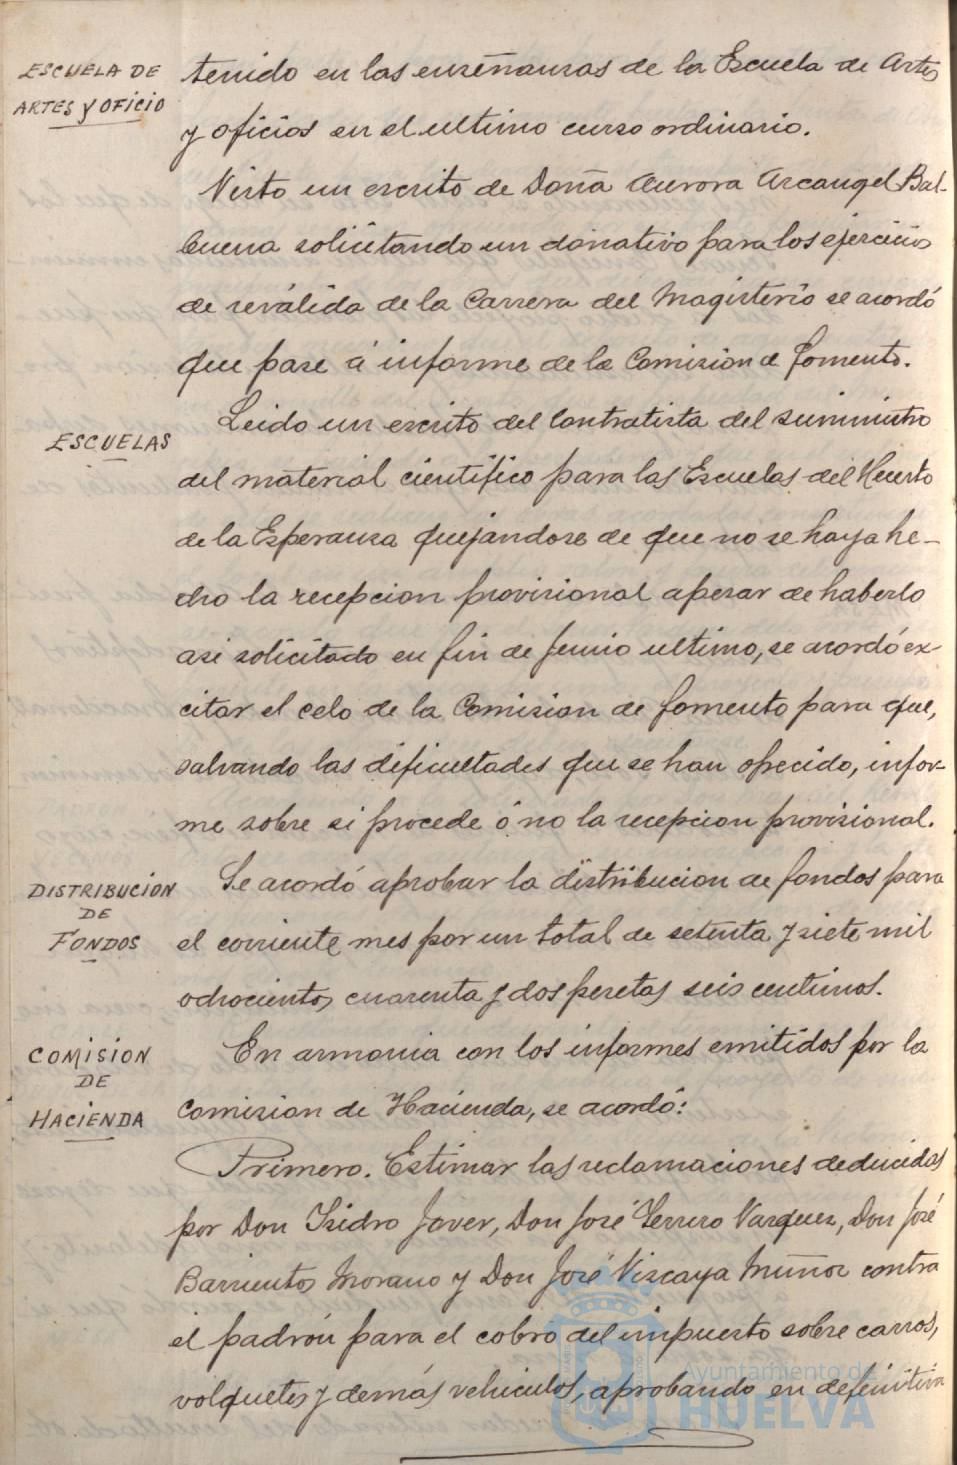 ESCUELA DE
ARTES Y OFICIO
tenido en las enseñanzas de la Escuela de Artes
y oficios en el ultimo curso ordinario.
Visto un escrito de Doña Aurora Arcangel Bal-
buena solicitando un donativo para los ejercicios
de reválida de la Carrera del Magisterio se acordó
que pase á informe de la Comision de fomento.
ESCUELAS
Leido un escrito del Contratista del suministro
del material cientifico para las Escuelas del Huerto
de la Esperanza quejandose de que no se haya he-
cho la recepcion provisional apesar de haberlo
asi solicitado en fin de Junio ultimo, se acordó ex-
citar el celo de la Comision de fomento para que,
salvando las dificultades que se han ofrecido, infor-
me sobre si procede ó no la recepcion provisional.
DISTRIBUCION
DE
FONDOS
Se acordó aprobar la distribucion de fondos para
el corriente mes por un total de setenta y siete mil
ochocientos cuarenta y dos pesetas seis centimos.
COMISION
DE
HACIENDA
En armonia con los informes emitidos por la
Comision de Hacienda, se acordó:
Primero. Estimar las reclamaciones deducidas
por Don Isidro Jover, Don José Vazquez, Don José
Barrientos Morano y Don José Vizcaya Muñoz contra
el padrón para el cobro del impuesto sobre carros,
volquetes y demás vehiculos, aprobando en definitiva
Ayuntamiento de
HUELVA